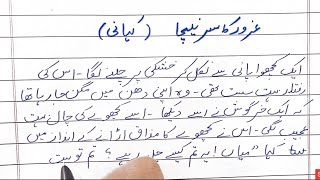 غرور کا سر نیچا (کہانی)
ایک کچھوا پانی سے نکل کر خشکی پر چلنے لگا۔ اس کی
رفتار بہت سست تھی۔ وہ اپنی دھن میں مگن جا رہا تھا
کہ ایک خرگوش نے اسے دیکھا۔ اسے کچھوے کی چال بہت
عجیب لگی۔ اس نے کچھوے کا مذاق اڑانے کے انداز میں
کہا "میاں! یہ تم کیسے چل رہے ہو؟ تم تو بہت